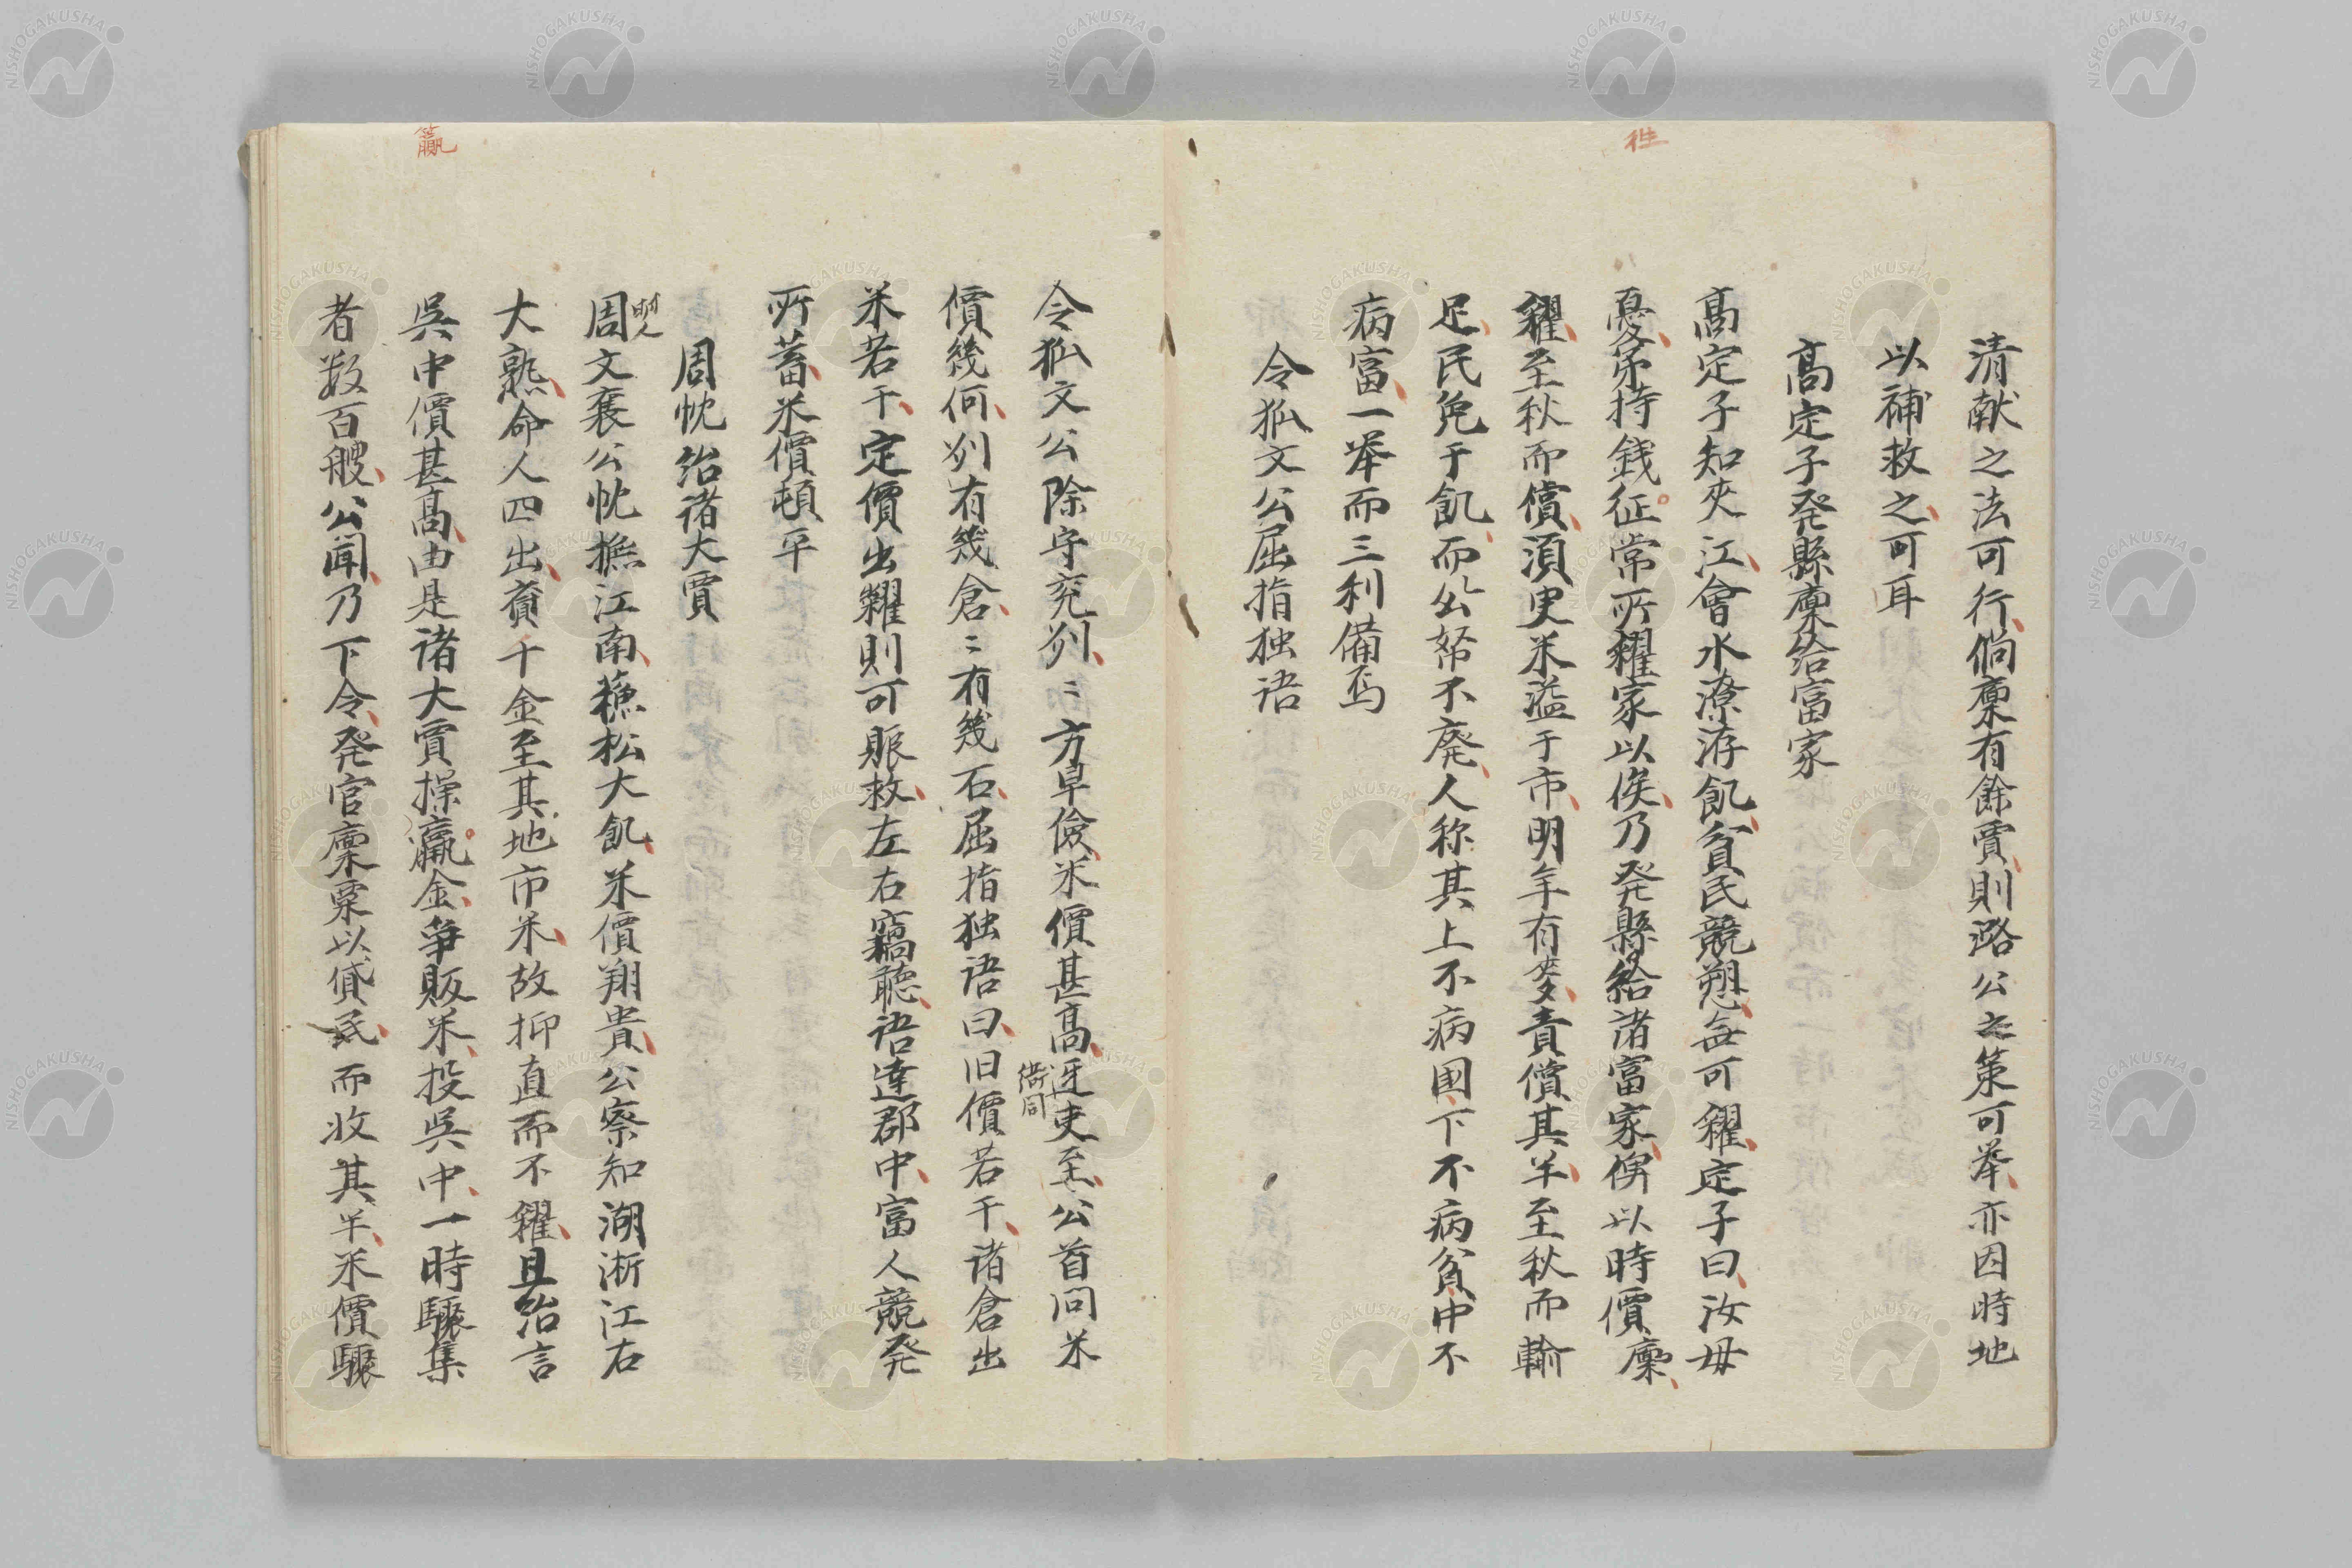 徃
清献之法可行倘廩有餘賈則潞公之策可举亦因時地
以補救之可耳
高定子発縣廩給富家
高定子知夾江會水潦洊飢貧民競愬無可糴定子曰汝毋
憂第持錢征常所糴家以俟乃発縣給諸富家俾以時價廩
糴至秋而償須臾米溢于市明年有麥責償其半至秋而輸
足民免于飢而公帑不廃人称其上不病国下不病貧中不
病富一举而三利備焉
令狐文公屈指独语
籯
令狐文公除守兖州〻方旱儉米價甚高迓吏至公首问米
衙同
價幾何州有幾倉〻有幾石屈指独语曰旧價若干诸倉出
米若干定價出糶則可賑救左右竊聽语達郡中富人競発
所蓄米價頓平
周忱给诸大賈
明人
周文襄公忱撫江南蘓松大飢米價翔貴公察知湖淅江右
大熟命人四出賫千金至其地市米故抑直而不糴且紿言
吳中價甚高由是诸大賈操籝金争販米投吳中一時驟集
者数百艘公闻乃下令発官廩粟以貸民而收其半米價驟